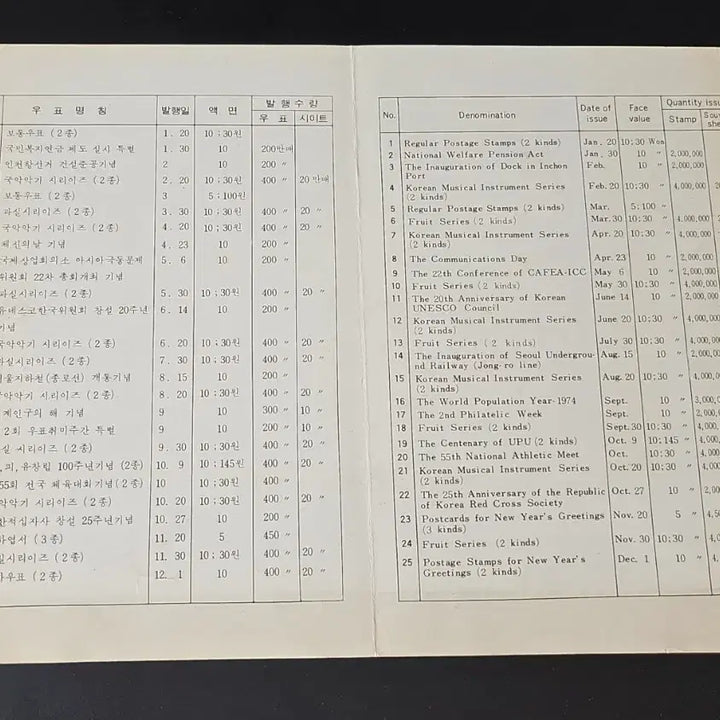 우표명칭 발행일 액면 발행수량
우표 시이트
보통우표 (2종) 1. 20 10 ; 30원
국민복지연금 제도 실시 특별 1. 30 10 200만매
인천항선거 건설준공기념 2 10 200 〃
국악악기 시리이즈 (2종) 2. 20 10 ; 30원 400 〃 20만매
보통우표 (2종) 3 5 ; 100원
과실시리이즈 (2종) 3. 30 10 ; 30원 400 〃 20 〃
국악악기 시리이즈 (2종) 4. 20 10 ; 30원 400 〃 20 〃
체신의날 기념 4. 23 10 200 〃
국제상업회의소 아시아극동문제 5. 6 10 200 〃
위원회 22차 총회개최 기념
과실시리이즈 (2종) 5. 30 10 ; 30원 400 〃 20 〃
유네스코한국위원회 창설 20주년 6. 14 10 200 〃
기념
국악악기 시리이즈 (2종) 6. 20 10 ; 30원 400 〃 20 〃
과실시리이즈 (2종) 7. 30 10 ; 30원 400 〃 20 〃
서울지하철(종로선) 개통기념 8. 15 10 200 〃
악악기 시리이즈 (2종) 8. 20 10 ; 30원 400 〃 20 〃
계인구의 해 기념 9 10 300 〃 10 〃
2회 우표취미주간 특별 9 10 200 〃 10 〃
실 시리이즈 (2종) 9. 30 10 ; 30원 400 〃 20 〃
.피.유창립 100주년기념 (2종) 10. 9 10 ; 145원 400 〃 20 〃
55회 전국 체육대회기념(2종) 10 10 ; 30원 400 〃
악악기 시리이즈 (2종) 10. 20 10 ; 30원 400 〃 20 〃
한적십자사 창설 25주년기념 10. 27 10 200 〃
하엽서 (3종) 11. 20 5 450 〃
실시리이즈 (2종) 11. 30 10 ; 30원 400 〃 20 〃
우표 (2종) 12. 1 10 400 〃 20 〃
No. Denomination Date of issue Face value Quantity issu
Stamp Sou
she
1 Regular Postage Stamps (2 kinds) Jan. 20 10:30 Won
2 National Welfare Pension Act Jan. 30 10 〃 2,000,000
3 The Inauguration of Dock in Inchon Feb. 10 〃 2,000,000
Port
4 Korean Musical Instrument Series Feb. 20 10:30 〃 4,000,000 20
(2 kinds)
5 Regular Postage Stamps (2 kinds) Mar. 5:100 〃
6 Fruit Series (2 kinds) Mar. 30 10:30 〃 4,000,000
7 Korean Musical Instrument Series Apr. 20 10:30 〃 4,000,000
(2 kinds)
8 The Communications Day Apr. 23 10 〃 2,000,000
9 The 22th Conference of CAFEA-ICC May 6 10 〃 2,000,000
10 Fruit Series (2 kinds) May 30 10:30 〃 4,000,000
11 The 20th Anniversary of Korean June 14 10 〃 2,000,000
UNESCO Council
12 Korean Musical Instrument Series June 20 10:30 〃 4,000,000
(2 kinds)
13 Fruit Series (2 kinds) July 30 10:30 〃 4,000,000
14 The Inauguration of Seoul Undergrou- Aug. 15 10 〃 2,000,00
nd Railway (Jong-ro line)
15 Korean Musical Instrument Series Aug. 20 10:30 〃 4,000,00
(2 kinds)
16 The World Population Year-1974 Sept. 10 〃 3,000,0
17 The 2nd Philatelic Week Sept. 10 〃 2,000,0
18 Fruit Series (2 kinds) Sept. 30 10:30 〃 4,000,0
19 The Centenary of UPU (2 kinds) Oct. 9 10:145 〃 4,000,
20 The 55th National Athletic Meet Oct. 10:30 〃 4,000,
21 Korean Musical Instrument Series Oct. 20 10:30 〃 4,000
(2 kinds)
22 The 25th Anniversary of the Republic Oct. 27 10 〃 2,00
of Korea Red Cross Society
23 Postcards for New Year's Greetings Nov. 20 5 〃 4,50
(3 kinds)
24 Fruit Series (2 kinds) Nov. 30 10:30 〃 4,0
25 Postage Stamps for New Year's Dec. 1 10 〃 4,
Greetings (2 kinds)